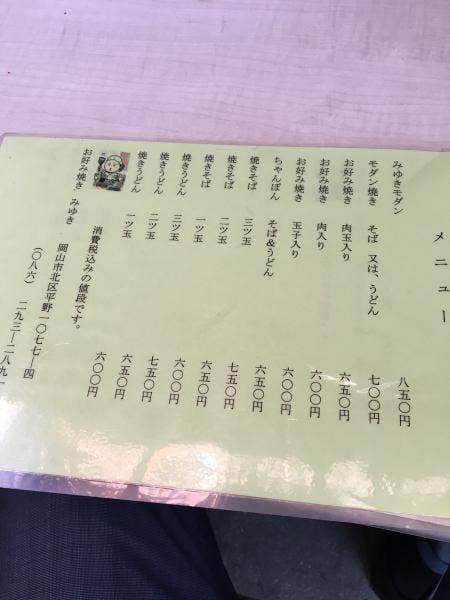 メニュー
みゆきモダン 八五〇円
モダン焼き そば 又は、うどん 七〇〇円
お好み焼き 肉玉入り 六五〇円
お好み焼き 肉入り 六〇〇円
お好み焼き 玉子入り 六〇〇円
ちゃんぽん そば&うどん 六五〇円
焼きそば 三ツ玉 七五〇円
焼きそば 二ツ玉 六五〇円
焼きそば 一ツ玉 六〇〇円
焼きうどん 三ツ玉 七五〇円
焼きうどん 二ツ玉 六五〇円
焼きうどん 一ツ玉 六〇〇円
消費税込みの値段です。
お好み焼き みゆき
岡山市北区平野一〇七七―四
(〇八六) 二九三―二八九